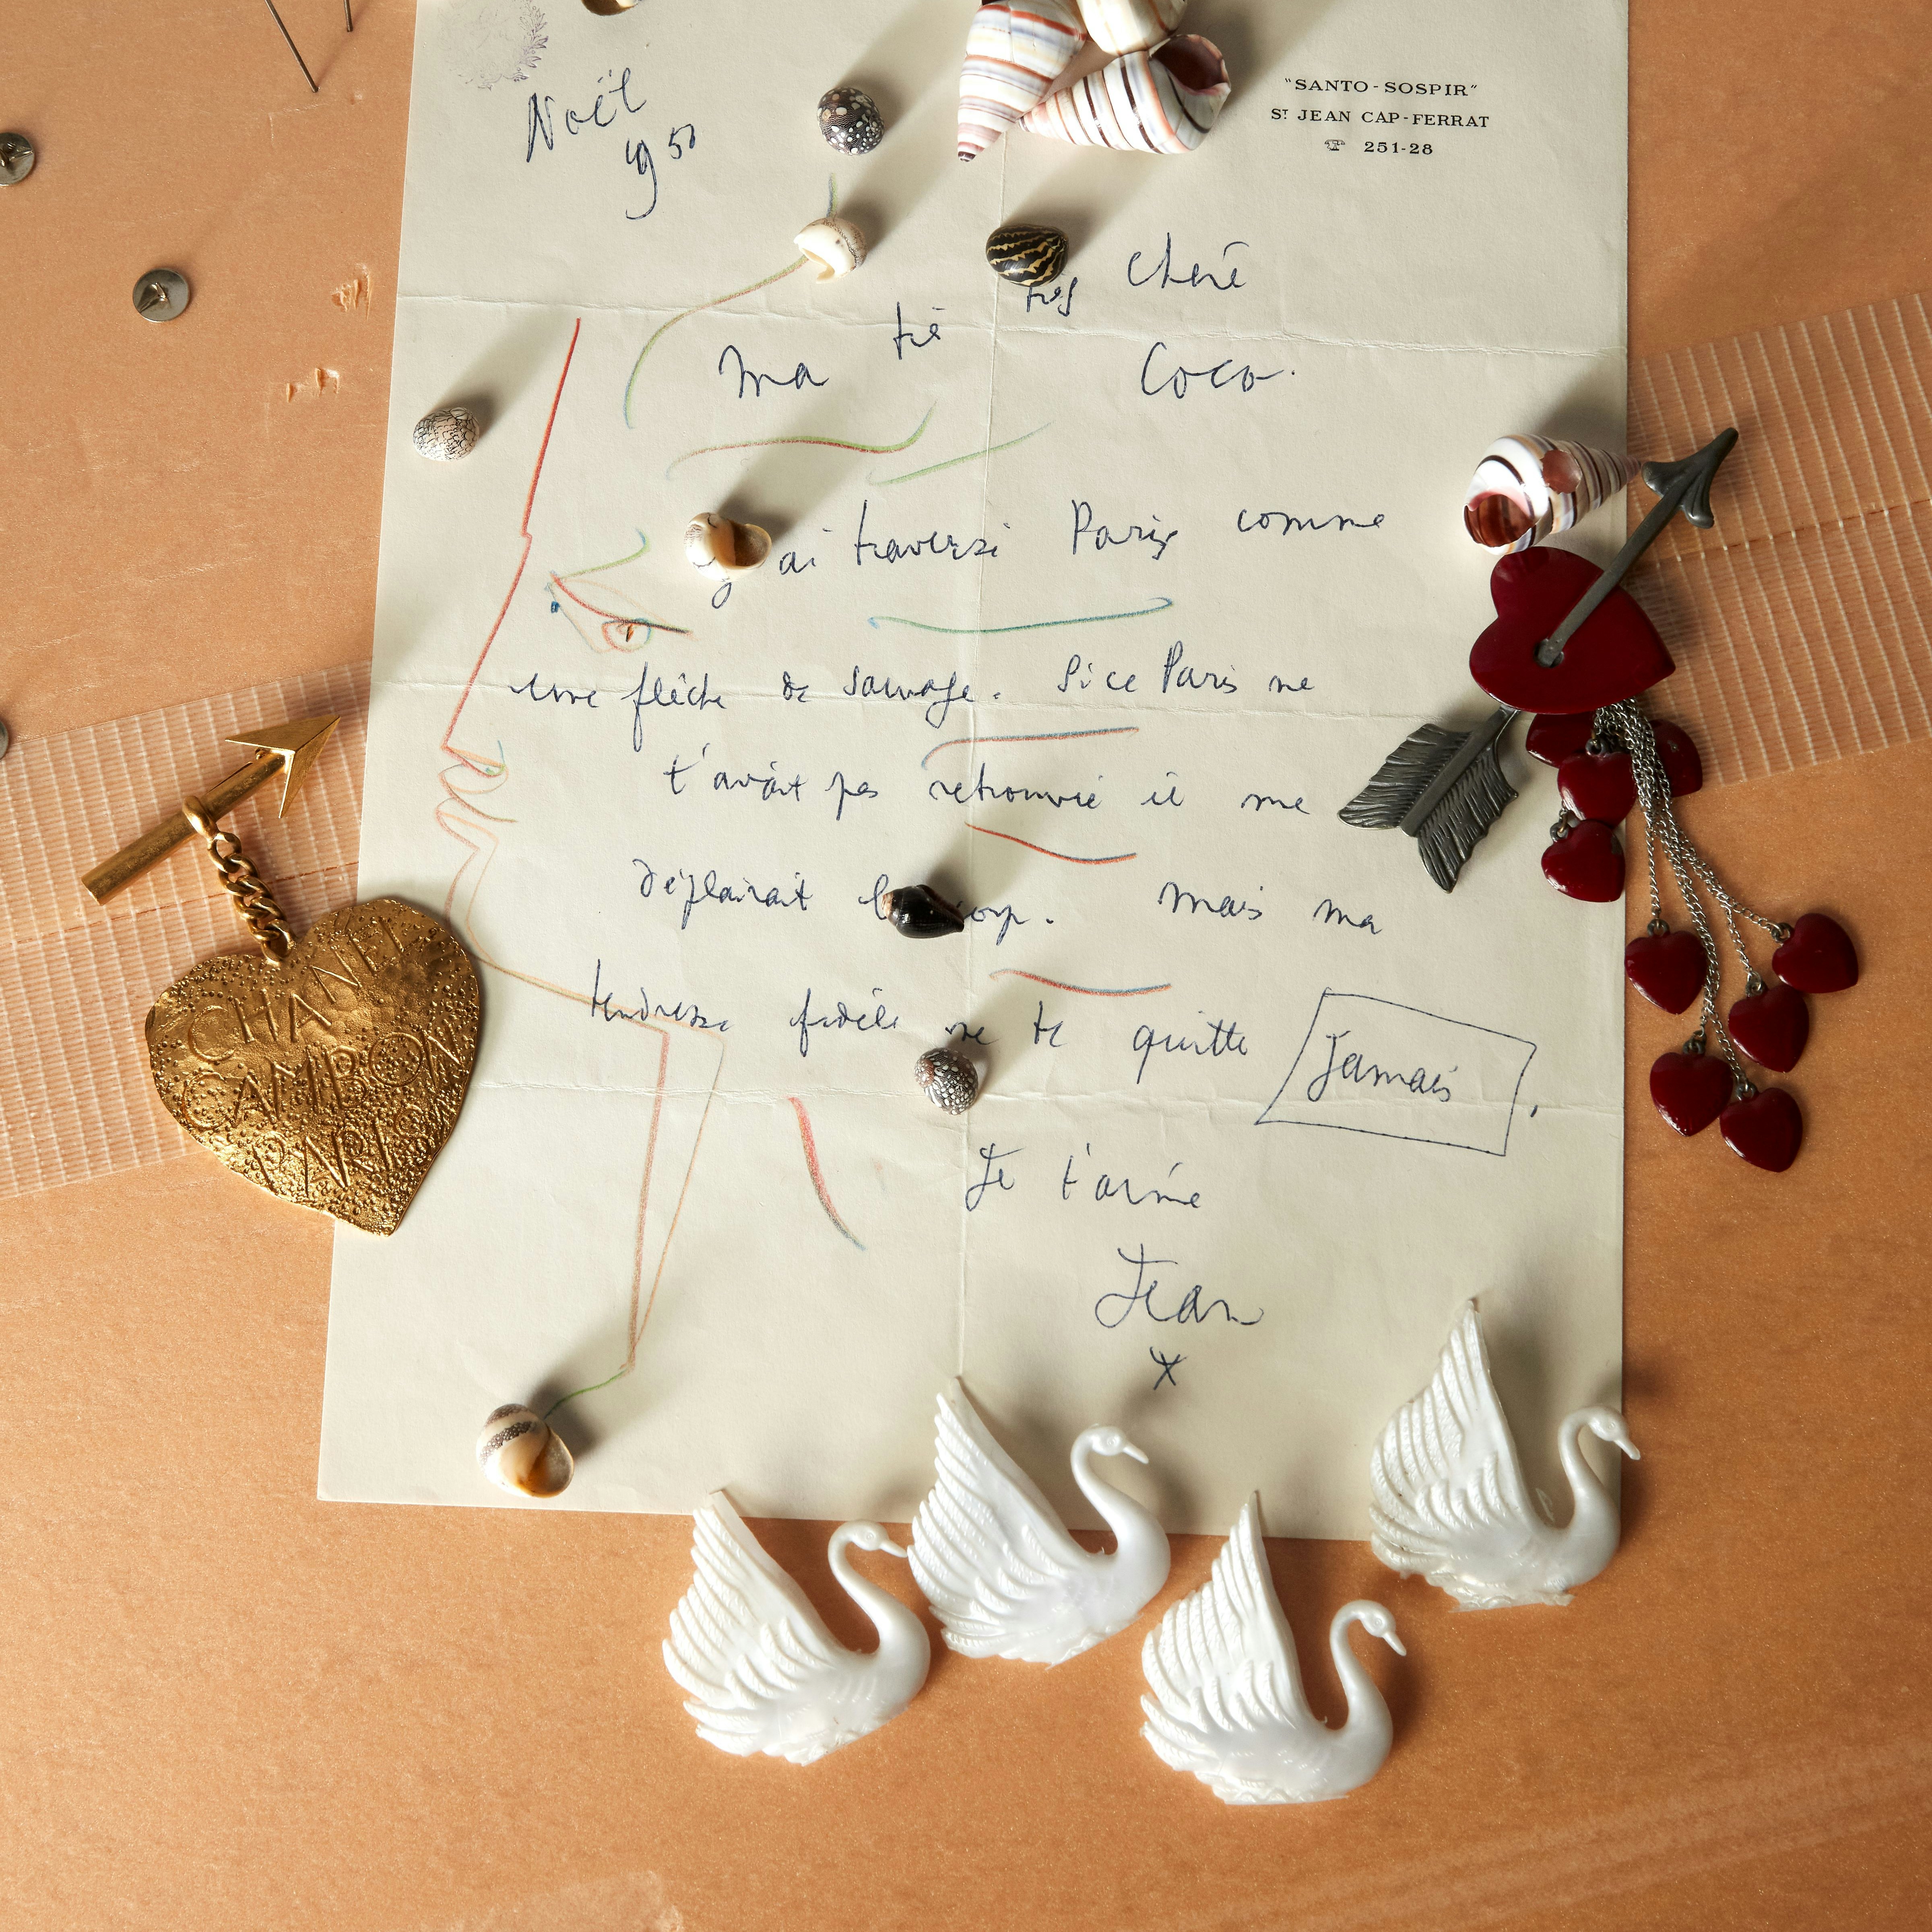 Noël
1950
"SANTO-SOSPIR"
ST JEAN CAP-FERRAT
☎ 251-28
Ma très très chère
Coco.
j'ai traversé Paris comme
une flèche de sauvage. Si ce Paris ne
t'avait pas retrouvée il me
déplairait. Mais ma
tendresse fidèle ne te quitte jamais.
Je t'aime
Jean
*
CHANEL
CAMBON
PARIS